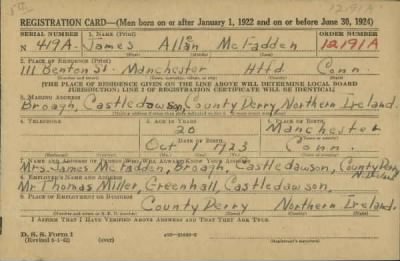 12191A
REGISTRATION CARD—(Men born on or after January 1, 1922 and on or before June 30, 1924)
SERIAL NUMBER 1. NAME (Print) ORDER NUMBER
N 419A James Allan McFadden 12191A
2. PLACE OF RESIDENCE (Print)
111 Benton St. Manchester Htfd Conn.
[THE PLACE OF RESIDENCE GIVEN ON THE LINE ABOVE WILL DETERMINE LOCAL BOARD
JURISDICTION; LINE 2 OF REGISTRATION CERTIFICATE WILL BE IDENTICAL]
3. MAILING ADDRESS
Broagh, Castledawson, County Derry, Northern Ireland.
4. TELEPHONE 5. AGE IN YEARS 6. PLACE OF BIRTH
20 Manchester
DATE OF BIRTH
Oct 1923 Conn.
7. NAME AND ADDRESS OF PERSON WHO WILL ALWAYS KNOW YOUR ADDRESS
Mrs. James McFadden, Broagh, Castledawson, County Derry N. Ireland
8. EMPLOYER'S NAME AND ADDRESS
Mr Thomas Miller, Greenhall, Castledawson,
9. PLACE OF EMPLOYMENT OR BUSINESS
County Derry Northern Ireland.
I AFFIRM THAT I HAVE VERIFIED ABOVE ANSWERS AND THAT THEY ARE TRUE.
D. S. S. Form 1
(Revised 6-1-42) (over) (Registrant's signature)